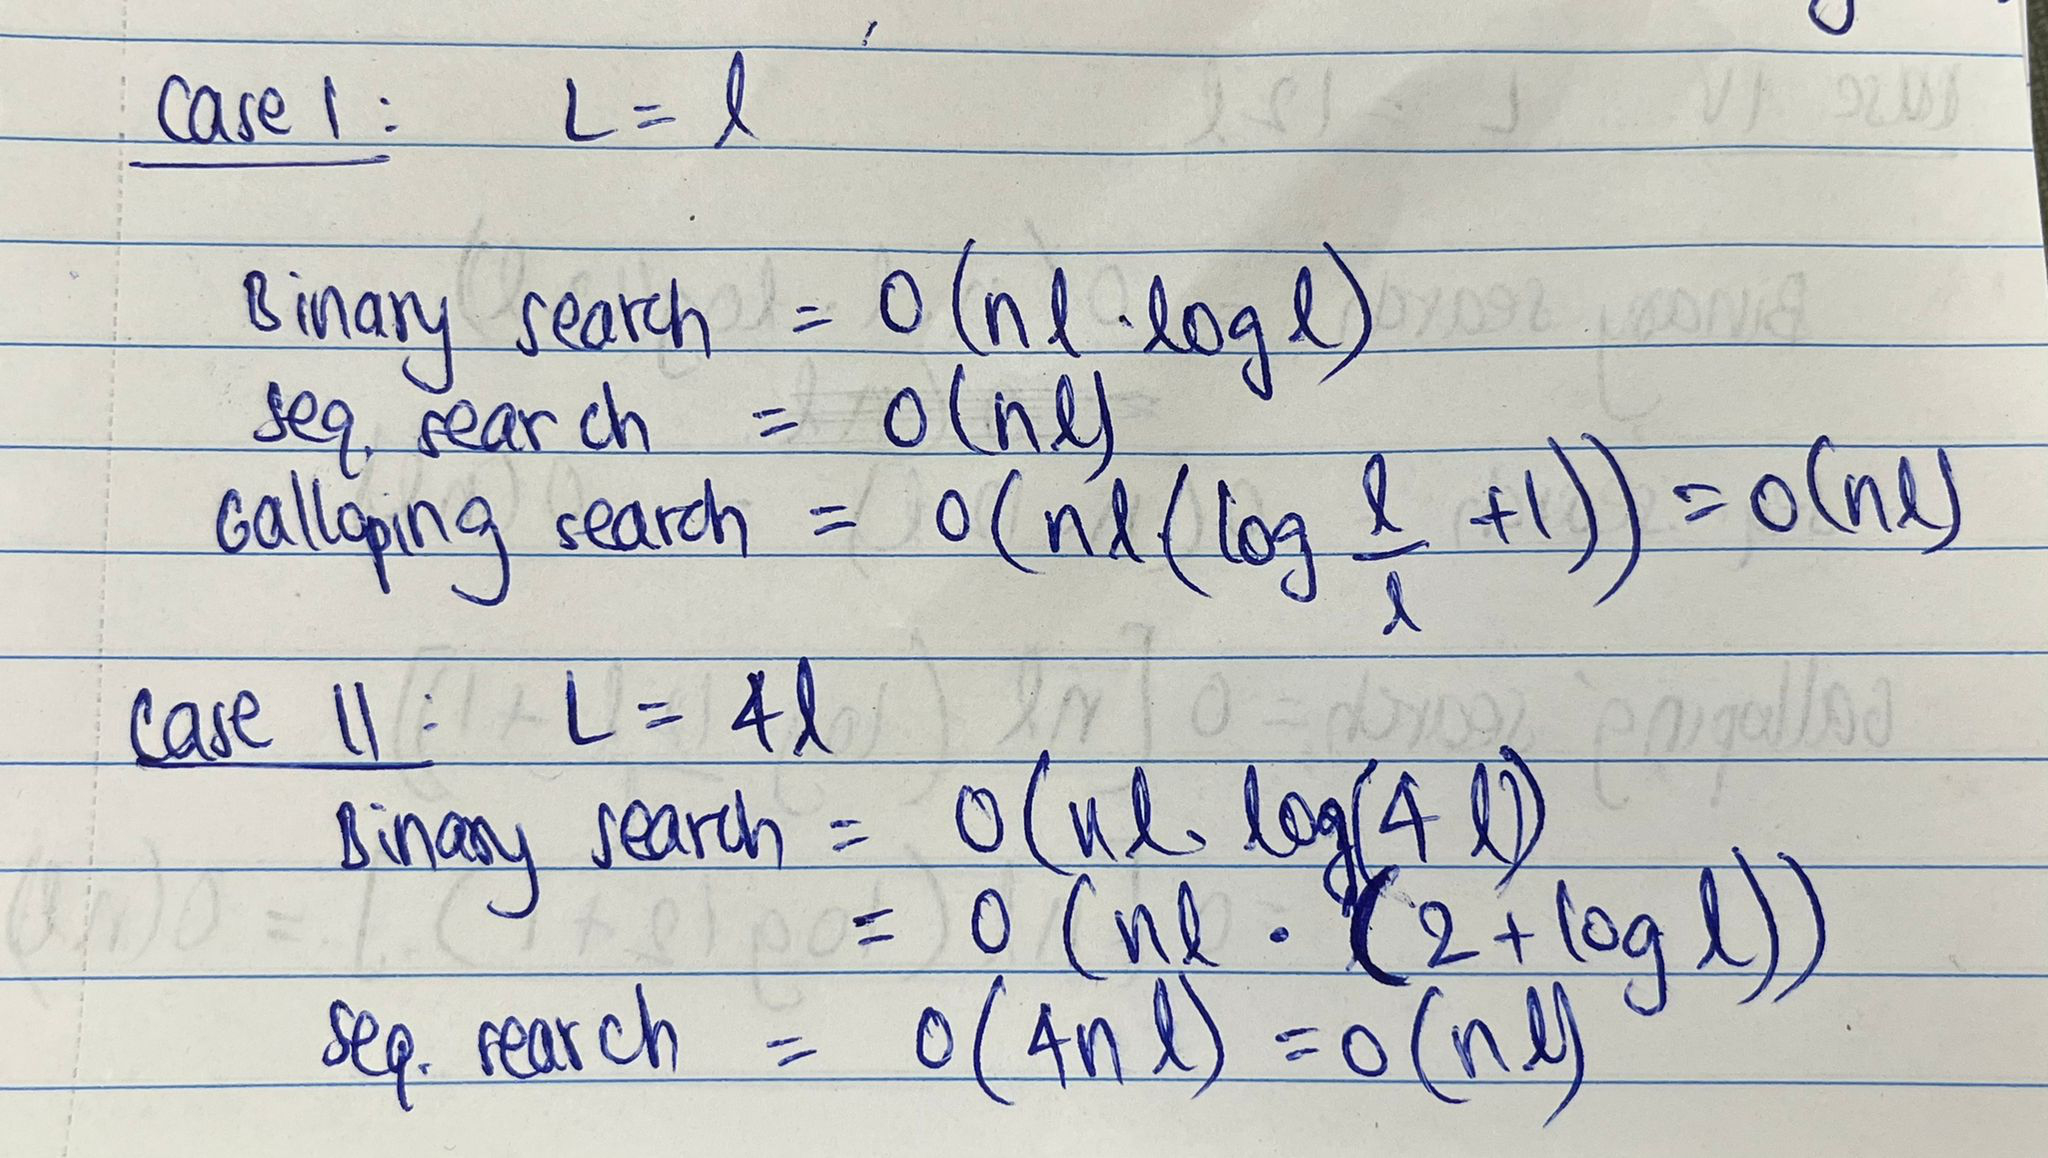 Case I: L = l
Binary search = O(nl · log l)
seq. search = O(nl)
Galloping search = O(nl(log l/l +1)) = O(nl)
Case II: L = 4l
Binary search = O(nl · log(4l))
= O(nl · (2 + log l))
seq. search = O(4nl) = O(nl)